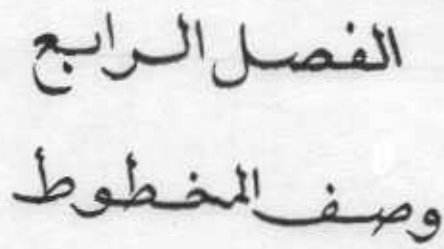 الفصل الرابع
وصف المخطوط